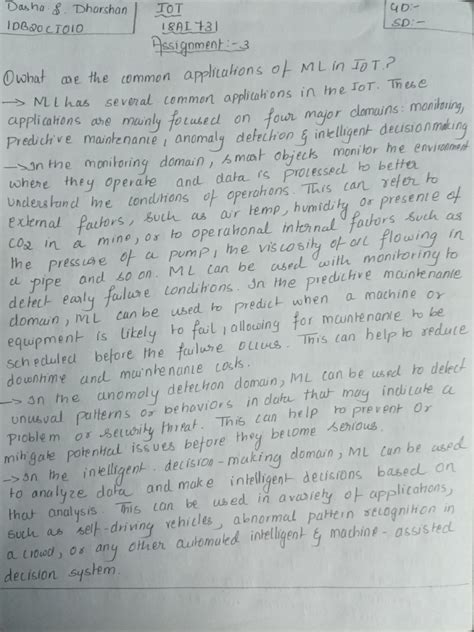 Dasha S. Dharshan IOT GD:-
1DB20CI010 18AI731 SD:-
Assignment:-3
① what are the common applications of ML in IoT?
→ ML has several common applications in the IoT. These
applications are mainly focused on four major domains: monitoring,
predictive maintenance, anomaly detection & intelligent decisionmaking
→ In the monitoring domain, smart objects monitor the environment
where they operate and data is processed to better
understand the conditions of operations. This can refer to
external factors, such as air temp, humidity or presence of
CO2 in a mine, or to operational internal factors such as
the pressure of a pump, the viscosity of oil flowing in
a pipe and so on. ML can be used with monitoring to
detect early failure conditions. In the predictive maintenance
domain, ML can be used to predict when a machine or
equipment is likely to fail, allowing for maintenance to be
scheduled before the failure occurs. This can help to reduce
downtime and maintenance costs.
→ In the anomoly detection domain, ML can be used to detect
unusual patterns or behaviors in data that may indicate a
problem or security threat. This can help to prevent or
mitigate potential issues before they become serious.
→ In the intelligent. decision-making domain, ML can be used
to analyze data and make intelligent decisions based on
that analysis This can be used in avariety of applications,
such as self-driving vehicles, abnormal pattern recognition in
a crowd, or any other automated intelligent & machine-assisted
decision system.